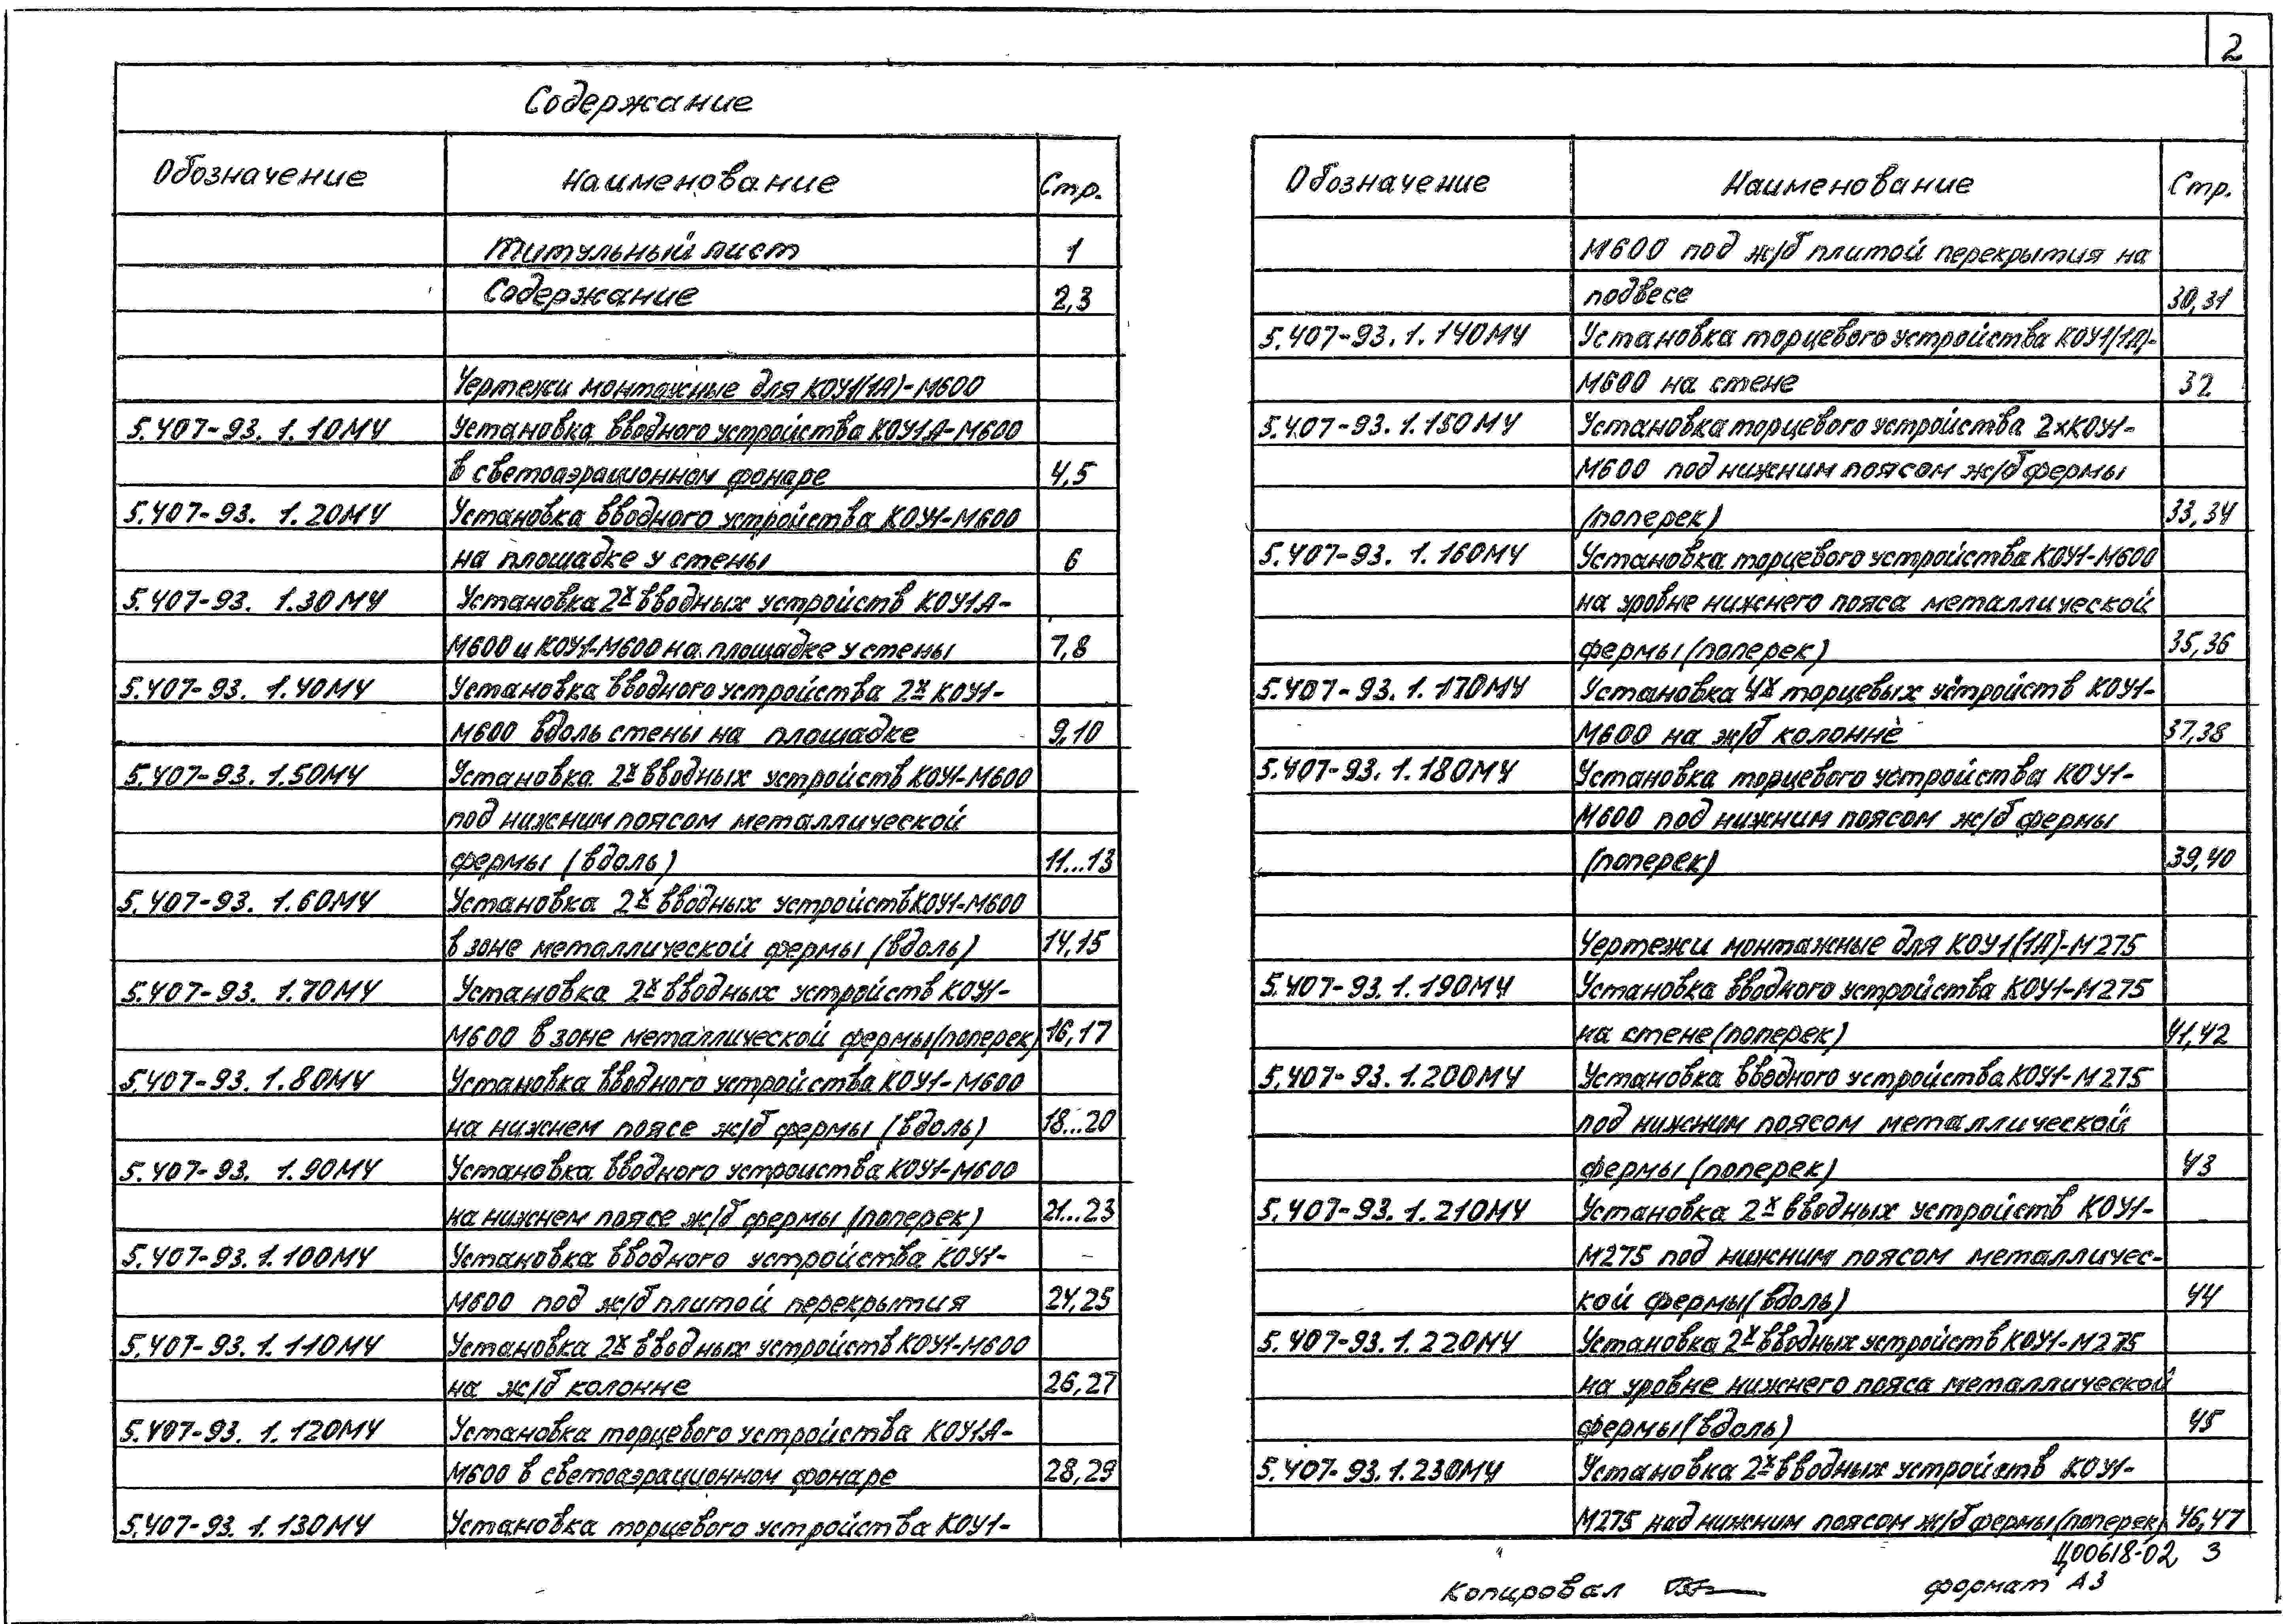 2
Содержание
Обозначение Наименование Стр.
Титульный лист 1
Содержание 2,3
Чертежи монтажные для КОУ1(1А)-М600
5.407-93. 1.10МЧ Установка вводного устройства КОУ1А-М600
в светоаэрационном фонаре 4,5
5.407-93. 1.20МЧ Установка вводного устройства КОУ1-М600
на площадке у стены 6
5.407-93. 1.30МЧ Установка 2х вводных устройств КОУ1А-
М600 и КОУ1-М600 на площадке у стены 7,8
5.407-93. 1.40МЧ Установка вводного устройства 2х КОУ1-
М600 вдоль стены на площадке 9,10
5.407-93. 1.50МЧ Установка 2х вводных устройств КОУ1-М600
под нижним поясом металлической
фермы (вдоль) 11...13
5.407-93. 1.60МЧ Установка 2х вводных устройств КОУ1-М600
в зоне металлической фермы (вдоль) 14,15
5.407-93. 1.70МЧ Установка 2х вводных устройств КОУ1-
М600 в зоне металлической фермы(поперек) 16,17
5.407-93. 1.80МЧ Установка вводного устройства КОУ1-М600
на нижнем поясе ж/б фермы (вдоль) 18...20
5.407-93. 1.90МЧ Установка вводного устроиства КОУ1-М600
на нижнем поясе ж/б фермы (поперек) 21...23
5.407-93. 1.100МЧ Установка вводного устройства КОУ1-
М600 под ж/б плитой перекрытия 24,25
5.407-93. 1.110МЧ Установка 2х вводных устройств КОУ1-М600
на ж/б колонне 26,27
5.407-93. 1.120МЧ Установка торцевого устройства КОУ1А-
М600 в светоаэрационном фонаре 28,29
5.407-93. 1.130МЧ Установка торцевого устройства КОУ1-
Обозначение Наименование Стр.
М600 под ж/б плитой перекрытия на
подвесе 30,31
5.407-93. 1. 140МЧ Установка торцевого устройства КОУ1(1А)-
М600 на стене 32
5.407-93. 1.150МЧ Установка торцевого устройства 2хКОУ1-
М600 под нижним поясом ж/б фермы
(поперек) 33,34
5.407-93. 1. 160МЧ Установка торцевого устройства КОУ1-М600
на уровне нижнего пояса металлической
фермы (поперек) 35,36
5.407-93. 1. 170МЧ Установка 4х торцевых устройств КОУ1-
М600 на ж/б колонне 37,38
5.407-93. 1.180МЧ Установка торцевого устройства КОУ1-
М600 под нижним поясом ж/б фермы
(поперек) 39,40
Чертежи монтажные для КОУ1(1А)-М275
5.407-93. 1.190МЧ Установка вводного устройства КОУ1-М275
на стене (поперек) 41,42
5.407-93. 1.200МЧ Установка вводного устройства КОУ1-М275
под нижним поясом металлической
фермы (поперек) 43
5.407-93. 1.210МЧ Установка 2х вводных устройств КОУ1-
М275 под нижним поясом металличес-
кой фермы (вдоль) 44
5.407-93. 1.220МЧ Установка 2х вводных устройств КОУ1-М275
на уровне нижнего пояса металлической
фермы (вдоль) 45
5.407-93. 1.230МЧ Установка 2х вводных устройств КОУ1-
М275 над нижним поясом ж/б фермы (поперек) 46,47
Ц00618-02 3
Копировал формат А3